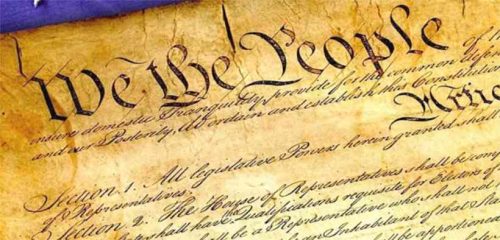 We the People of
insure domestic Tranquility, provide for the common defence
and our Posterity, do ordain and establish this Constitution
Artic
Section. 1. All legislative Powers herein granted shall
of Representatives.
Section. 2. The House of Representatives shall be com
shall have the Qualifications requisite for Electors of
shall be a Representative who shall not
an Inhabitant of that State
apportioned